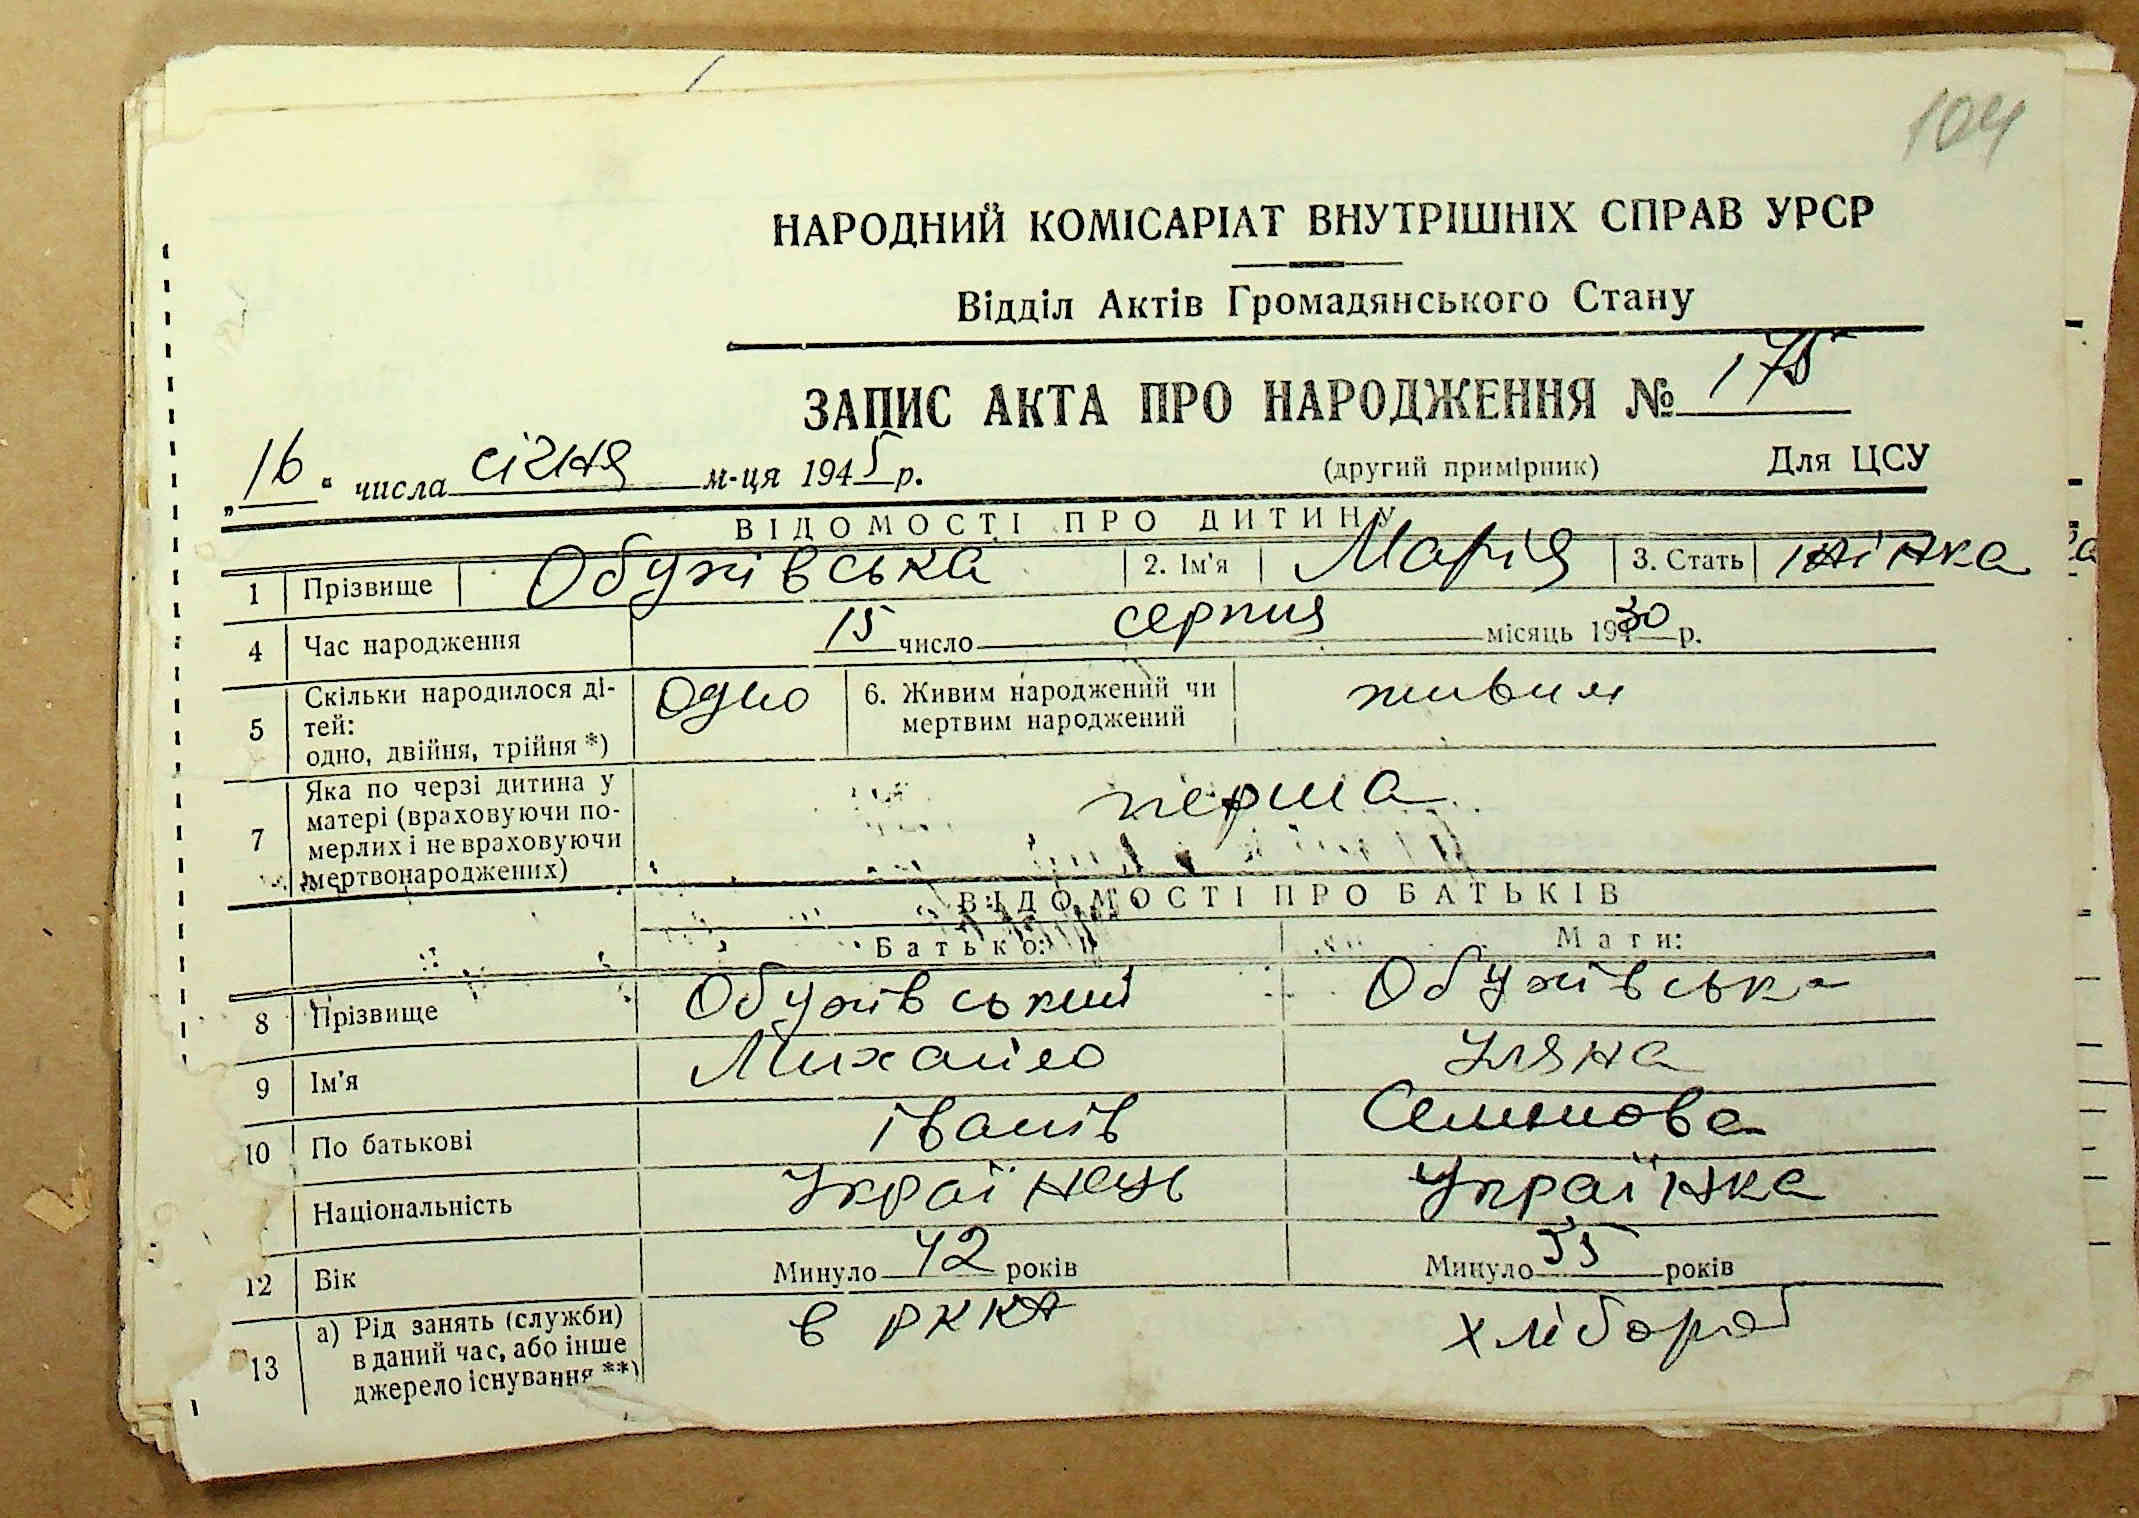 104
НАРОДНИЙ КОМІСАРІАТ ВНУТРІШНІХ СПРАВ УРСР
Відділ Актів Громадянського Стану
ЗАПИС АКТА ПРО НАРОДЖЕННЯ № 175
„16" числа січня м-ця 1945 р. (другий примірник) Для ЦСУ
ВІДОМОСТІ ПРО ДИТИНУ
1 Прізвище Обужівська 2. Ім'я Марія 3. Стать жінка
4 Час народження 15 число серпня місяць 1930 р.
5 Скільки народилося ді- одно 6. Живим народжений чи живим
тей: мертвим народжений
одно, двійня, трійня *)
Яка по черзі дитина у перша
матері (враховуючи по-
7 мерлих і не враховуючи
мертвонароджених)
ВІДОМОСТІ ПРО БАТЬКІВ
Батько: Мати:
8 Прізвище Обужівський Обужівська
9 Ім'я Михайло Уляна
10 По батькові Іванів Семенова
Національність Українець Українка
12 Вік Минуло 42 років Минуло 35 років
13 а) Рід занять (служби) в РККА хлібороб
в даний час, або інше
джерело існування **)